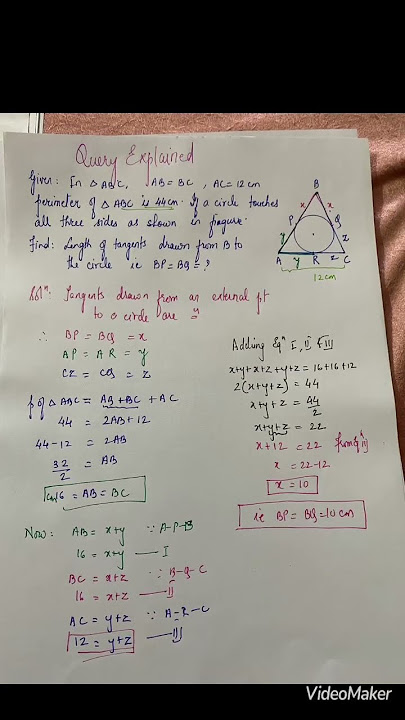 Query Explained
Given: In △ABC, AB=BC, AC=12cm
perimeter of △ABC is 44cm. If a circle touches
all three sides as shown in fingure.
Find: Length of tangents drawn from B to
the circle ie BP=BQ=?
B
x x
P Q
y z
A y R z C
12cm
Solⁿ: Tangents drawn from an external pt
to a circle are =
∴ BP = BQ = x
AP = AR = y
CR = CQ = z
p of △ABC = AB+BC + AC
44 = 2AB+12
44-12 = 2AB
32/2 = AB
16 = AB = BC
Now: AB = x+y ∵ A-P-B
16 = x+y — I
BC = x+z ∵ B-Q-C
16 = x+z — II
AC = y+z ∵ A-R-C
12 = y+z — III
Adding Eqⁿ I, II & III
x+y+x+z+y+z = 16+16+12
2(x+y+z) = 44
x+y+z = 44/2
x+y+z = 22
x+12 = 22 from eqⁿ III
x = 22-12
x = 10
ie BP = BQ = 10 cm
VideoMaker